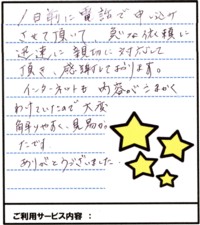 1日前に電話で申し込み
させて頂いて、急な依頼に
迅速に親切に対応して
頂き、感謝しております。
インターネットも内容がこまかく
わけていたので大変
解りやすく、見易か
たです
ありがとうございました。
ご利用サービス内容：